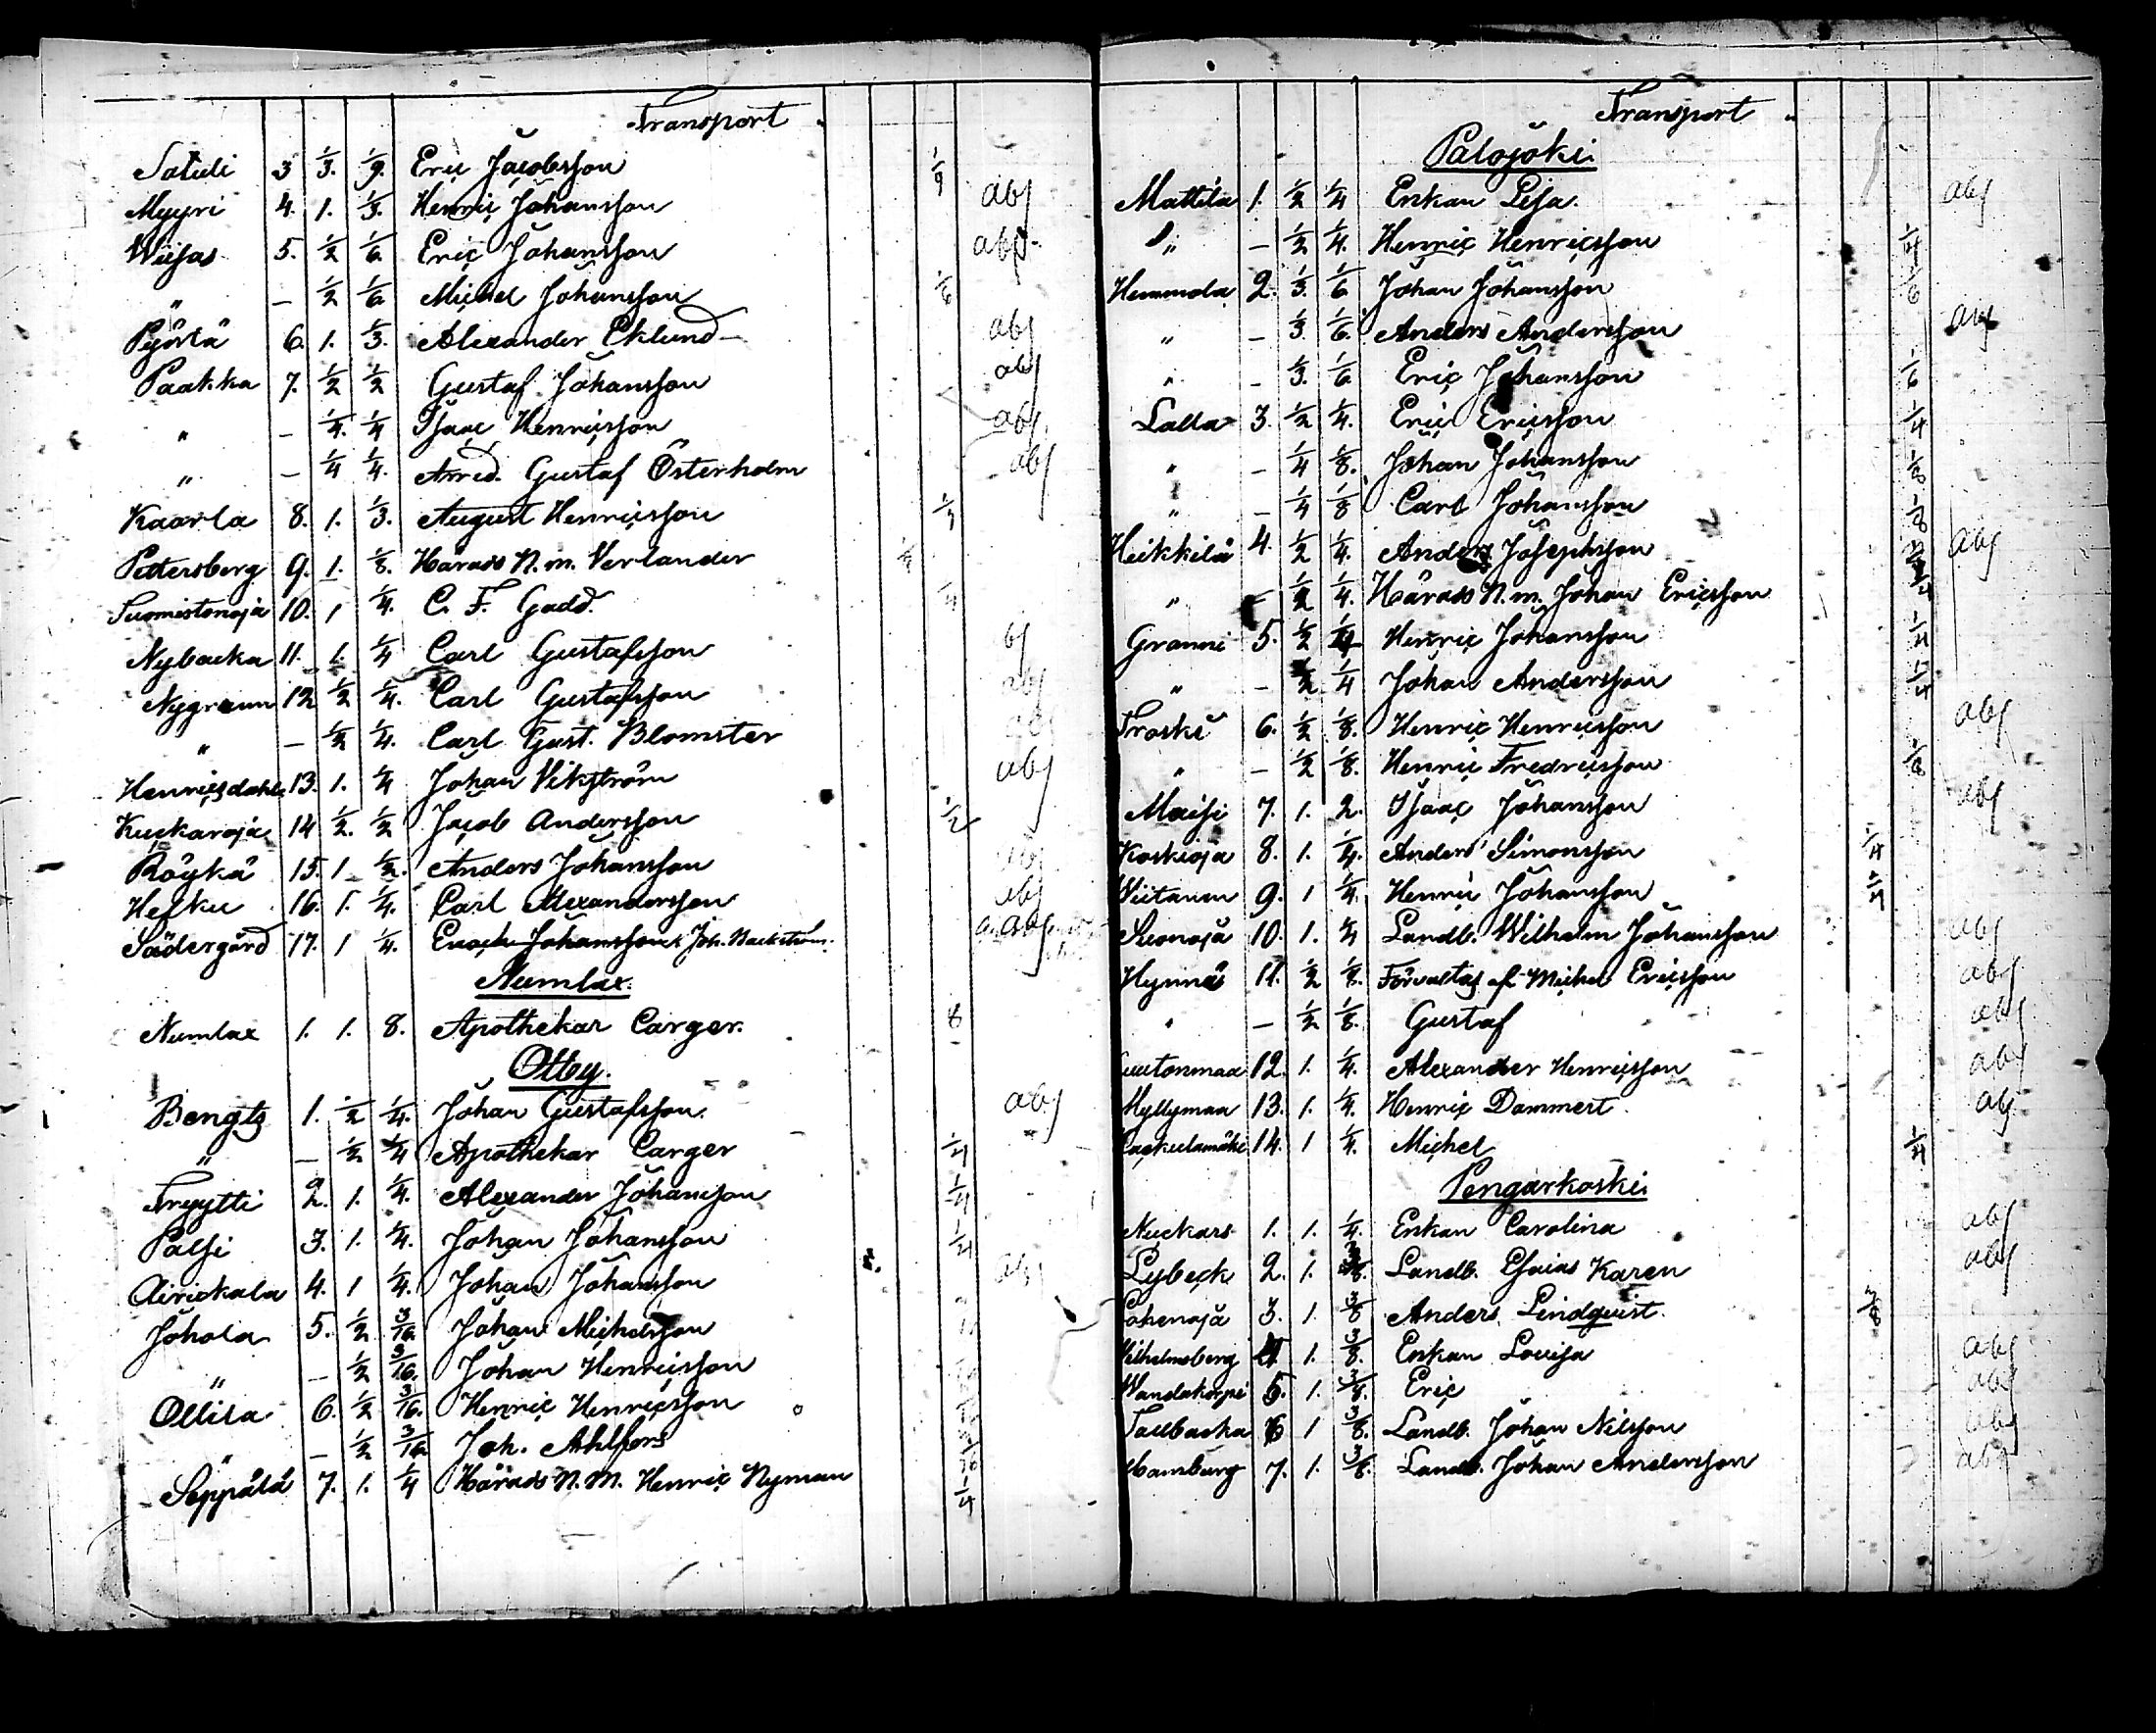 Transport
Satuli 3 1/3. 1/9. Eric Jacobsson 1/9
Myyri 4. 1. 1/3. Henric Johansson abs
Wiisas 5. 1/2 1/6 Eric Johansson abs
" — 1/2 1/6. Michel Johansson 1/6
Pyörlä 6. 1. 1/3. Alexander Eklund abs
Paakka 7. 1/2 1/2 Gustaf Johansson abs
" — 1/4. 1/4 Isaac Henricsson abs
" — 1/4 1/4. Arred. Gustaf Österholm abs
Kaarla 8. 1. 1/3. August Henricsson
Pettersberg 9. 1. 1/8. Härads N.m. Verlander
Suomistonoja 10. 1 1/4. C. F. Gadd.
Nybacka 11. 1. 1/4 Carl Gustafsson
Nygrann 12 1/2 1/4. Carl Gustafsson abs
" — 1/2 1/4. Carl Gust. Blomster abs
Henricsdahl 13. 1. 1/4 Johan Vikström abs
Kuckaroja 14 1/2. 1/2 Jacob Andersson 1/2
Röykä 15. 1 1/2. Anders Johansson abs
Hefku 16. 1. 1/4. Carl Alexandersson abs
Södergård 17. 1 1/4. Enoch Johansson & Joh. Backström.
Numlax.
Numlax 1. 1. 8. Apothekar Carger. 8
Otby.
Bengts 1. 1/2 1/4. Johan Gustafsson. abs
" — 1/2 1/4 Apothekar Carger 1/4
Tryytti 2. 1. 1/4. Alexander Johansson 1/4
Palsi 3. 1. 1/4. Johan Johansson 1/4
Airickala 4. 1 1/4. Johan Johansson abs
Johola 5. 1/2 3/16. Johan Michelsson
" — 1/2 3/16. Johan Henricsson
Ollila 6. 1/2 3/16. Henric Henricsson
" — 1/2 3/16. Joh. Ahlfors
Seppälä 7. 1. 1/4 Härads N.M. Henric Nyman 1/4
Transport
Palojoki.
Mattila 1. 1/2 1/4 Enkan Lisa. abs
" — 1/2 1/4. Henric Henricsson 1/4
Hemmola 2. 1/3. 1/6 Johan Johansson 1/6
" — 1/3 1/6. Anders Andersson abs
" — 1/3. 1/6 Eric Johansson 1/6
Lalla 3. 1/2 1/4. Eric Ericsson 1/4
" — 1/4 1/8. Johan Johansson 1/8
" — 1/4 1/8 Carl Johansson 1/8
Heikkilä 4. 1/2 1/4. Anders Josephsson abs
" — 1/2 1/4. Härads N.m. Johan Ericsson 1/4
Granni 5. 1/2 1/4 Henric Johansson 1/4
" — 1/2 1/4 Johan Andersson 1/4
Troski 6. 1/2 1/8. Henric Henricsson abs
" — 1/2 1/8. Henric Fredricsson 1/8
Maisi 7. 1. 2. Isaac Johansson abs
Koskioja 8. 1. 1/4. Anders Simonsson 1/4
Wiitanen 9. 1 1/4. Henric Johansson 1/4
10. 1. 1/4 Landb. Wilhelm Johansson abs
Hynnä 11. 1/2 1/8. Förvaltas af Michel Ericsson abs
" — 1/2 1/8. Gustaf abs
12. 1. 1/4. Alexander Henricsson abs
Myllymaa 13. 1. 1/4. Henric Dammert abs
14. 1 1/4. Michel 1/4
Pengarkoski.
Nuckars 1. 1. 1/4. Enkan Carolina abs
Lybeck 2. 1. 3/8. Landb. Esaias Karen abs
3. 1. 3/8 Anders Lindquist. 3/8
Wilhelmsberg 4 1. 3/8. Enkan Lovisa abs
Wandakorpi 5. 1. 3/8. Eric abs
Tallbacka 6 1 3/8. Landb. Johan Nilsson abs
Hamburg 7. 1. 3/8. Landb. Johan Andersson abs